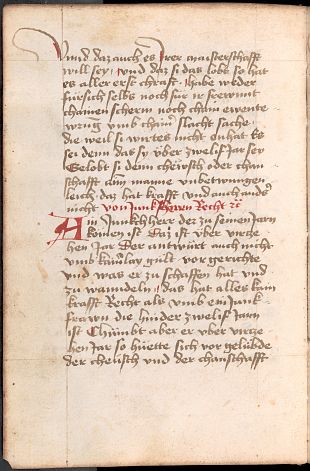 Vnnd daz auch es Irer maisterschafft
will sey / vnd daz si das lobt so hat
es aller erst chrafft / habe weder
fürsich selbs noch für ir
chainen scherm noch chain
vmb chainer slacht sache
die weil si wirtes nicht en hat Es
sei denn das sy über zwelif Jar sey
Gelobt si denn chewsch oder chan
schafft ainem manne vnbetwungen
leich daz hat krafft vnd auch anders
nicht von Junkherren Recht
Ain Junkherr der zu seinen Jarn
komen ist Daz ist über virtze
hen Jar Der antwurt auch nicht
vmb gult vor gerichte
vnd was er zu schaffen hat vnd
zu wanndeln / das hat alles kain
krafft Recht als vmb ein Junk
frawn die hinder zwelif Jarn
ist Chumbt aber er vber virtze
hen Jar so hüette sich vor gelübde
der cheusch vnd der chanschafft